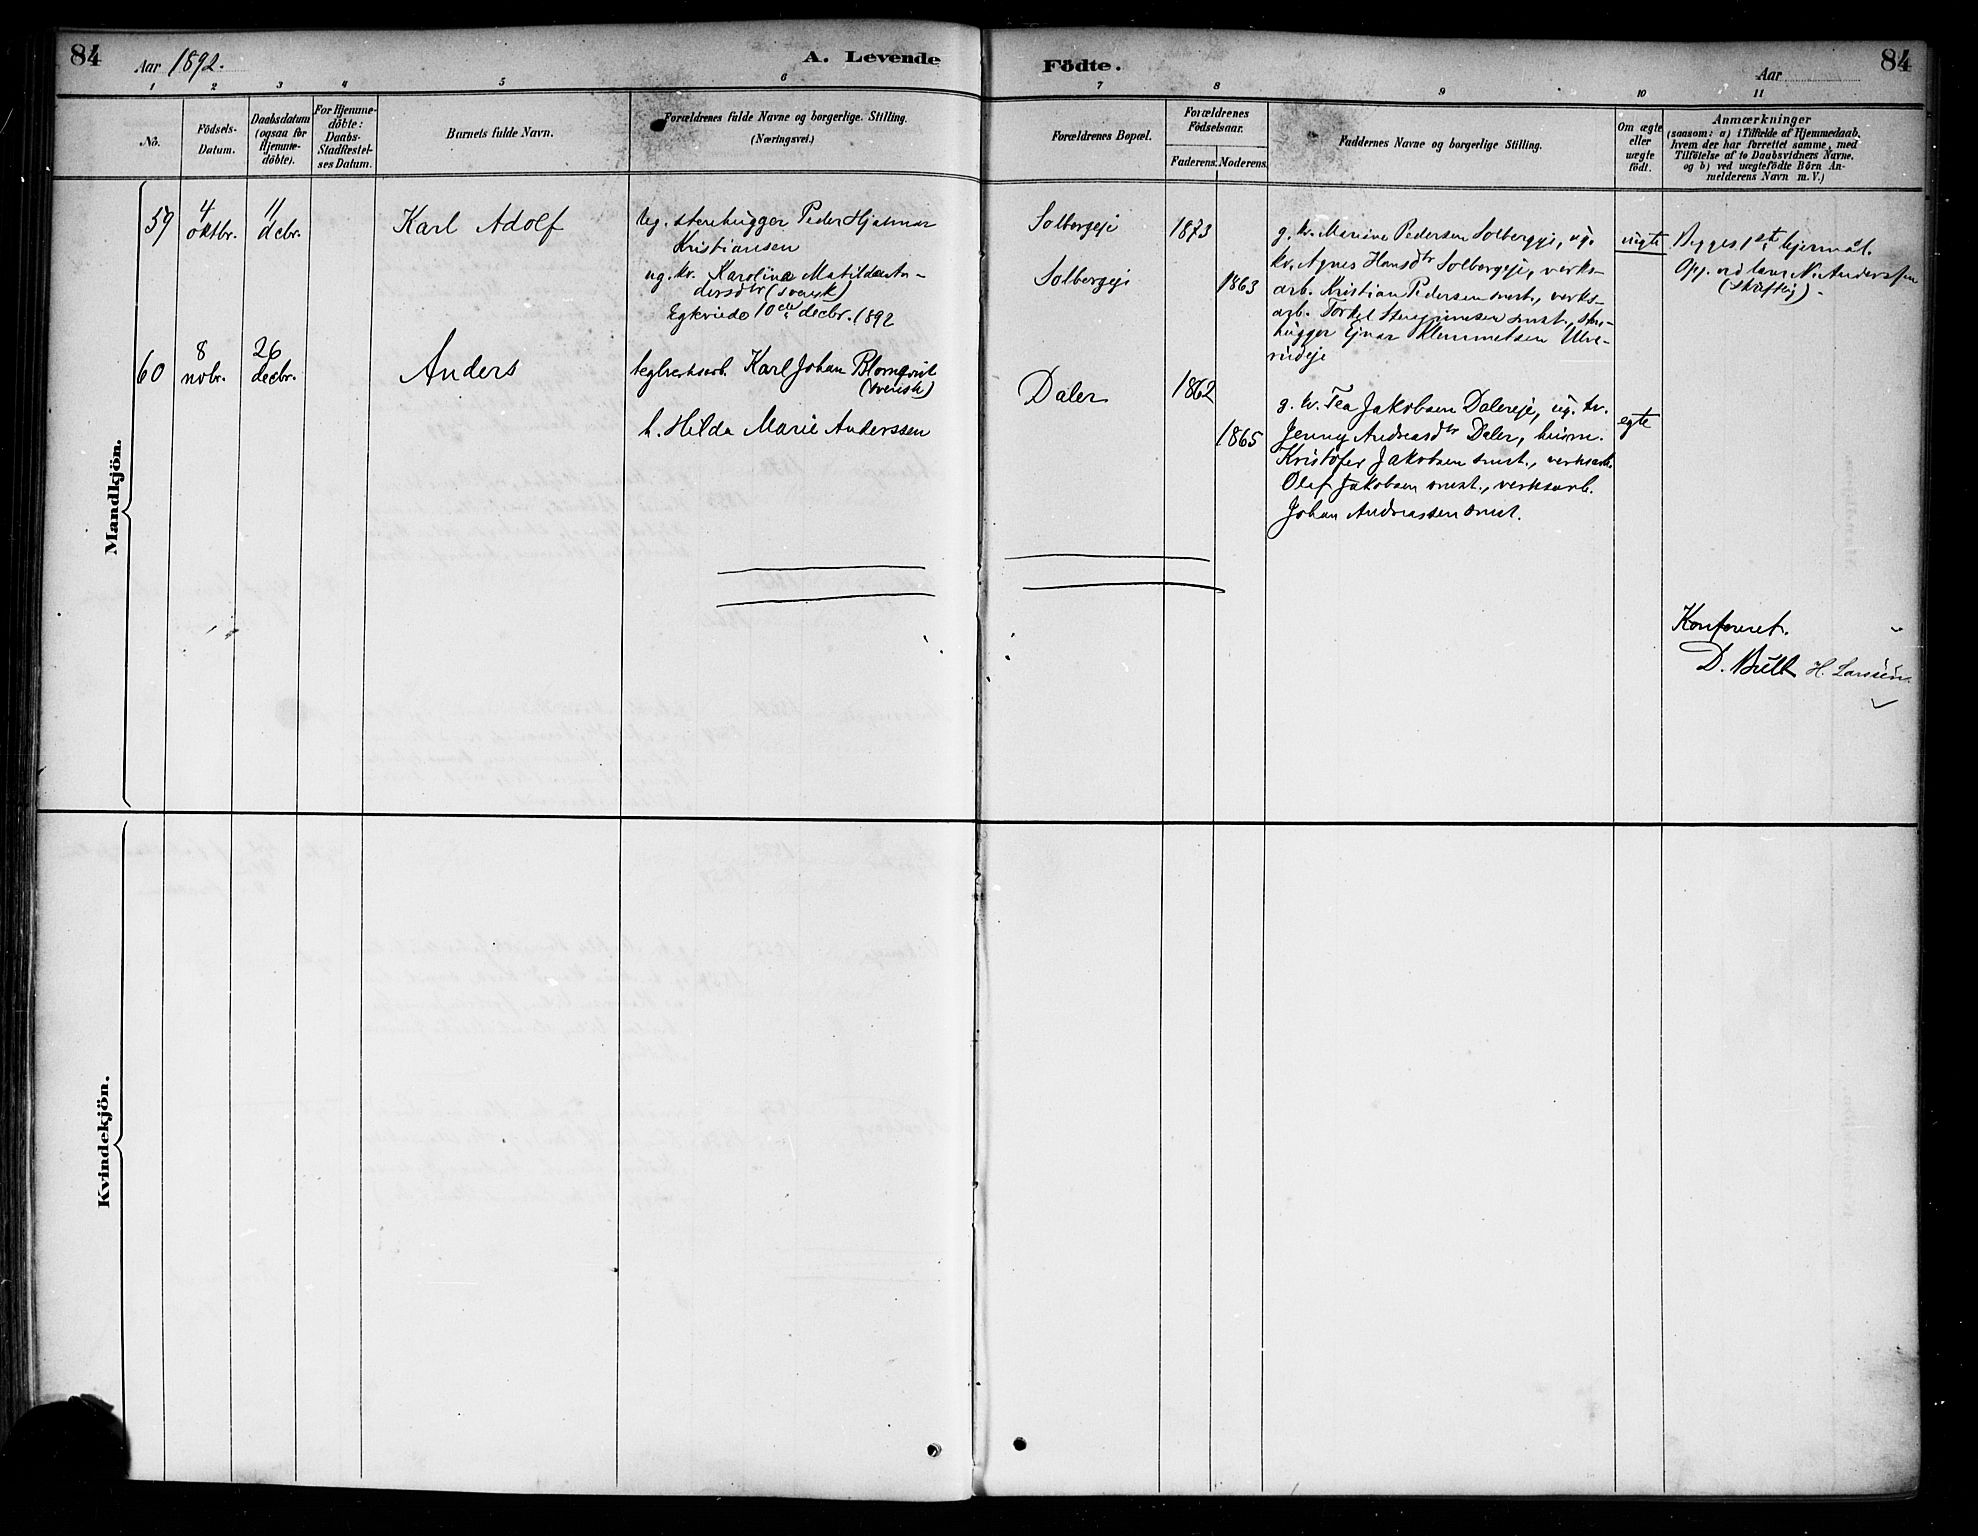 84
Aar 1892.
A. Levende
Födte.
Aar
84
1 2 3 4 5 6 7 8 9 10 11
No.
Födsels-
Datum.
Daabsdatum
(ogsaa for
Hjemme-
döbte).
For Hjemme-
döbte:
Daabs-
Stadfæstel-
ses Datum.
Barnets fulde Navn.
Forældrenes fulde Navne og borgerlige Stilling.
(Næringsvei.)
Forældrenes Bopæl.
Forældrenes
Födselsaar.
Faderens. Moderens.
Faddernes Navne og borgerlige Stilling.
Om ægte
eller
uægte
födt.
Anmærkninger
(saasom: a) i Tilfælde af Hjemmedaab,
hvem der har forrettet samme, med
Tilföielse af to Daabsvidners Navne,
og b) ved uægtefödte Börn An-
melderens Navn m. V.)
Mandkjön.
59
4
oktbr.
11
decbr.
Karl Adolf
Ug. stenhugger Peder Hjalmar
Kristiansen
ug. kv. Karolina Matilda An-
dersdtr (svensk)
Egteviede 10de decbr. 1892
Solbergeje
Solbergeje
1873
1863
g. kv. Marine Pedersen Solbergeje, ug.
kv. Agnes Hansdtr Solbergeje, verks-
arb. Kristian Pedersen smst., verks-
arb. Torkel smst., sten-
hugger Ejnar Klemmetsen Ulve-
rudeje
uegte
Begges 1ste lejermål.
Opg. ved faren N. Anderssen
(skriftlig) -
60
8
novbr.
26
decbr.
Anders
teglverksarb. Karl Johan Blomqvist
(svensk)
h. Hilda Marie Anderssen
Daler
1862
1865
g. kv. Tea Jakobsen Dalereje, ug. kv.
Jenny Andreasdtr Daler, husm.
Kristofer Jakobsen smst., verksarb.
Olaf Jakobsen smst., verksarb.
Johan Andreassen smst.
egte
Konfereret.
D. Bull H. Larssen.
Kvindekjön.